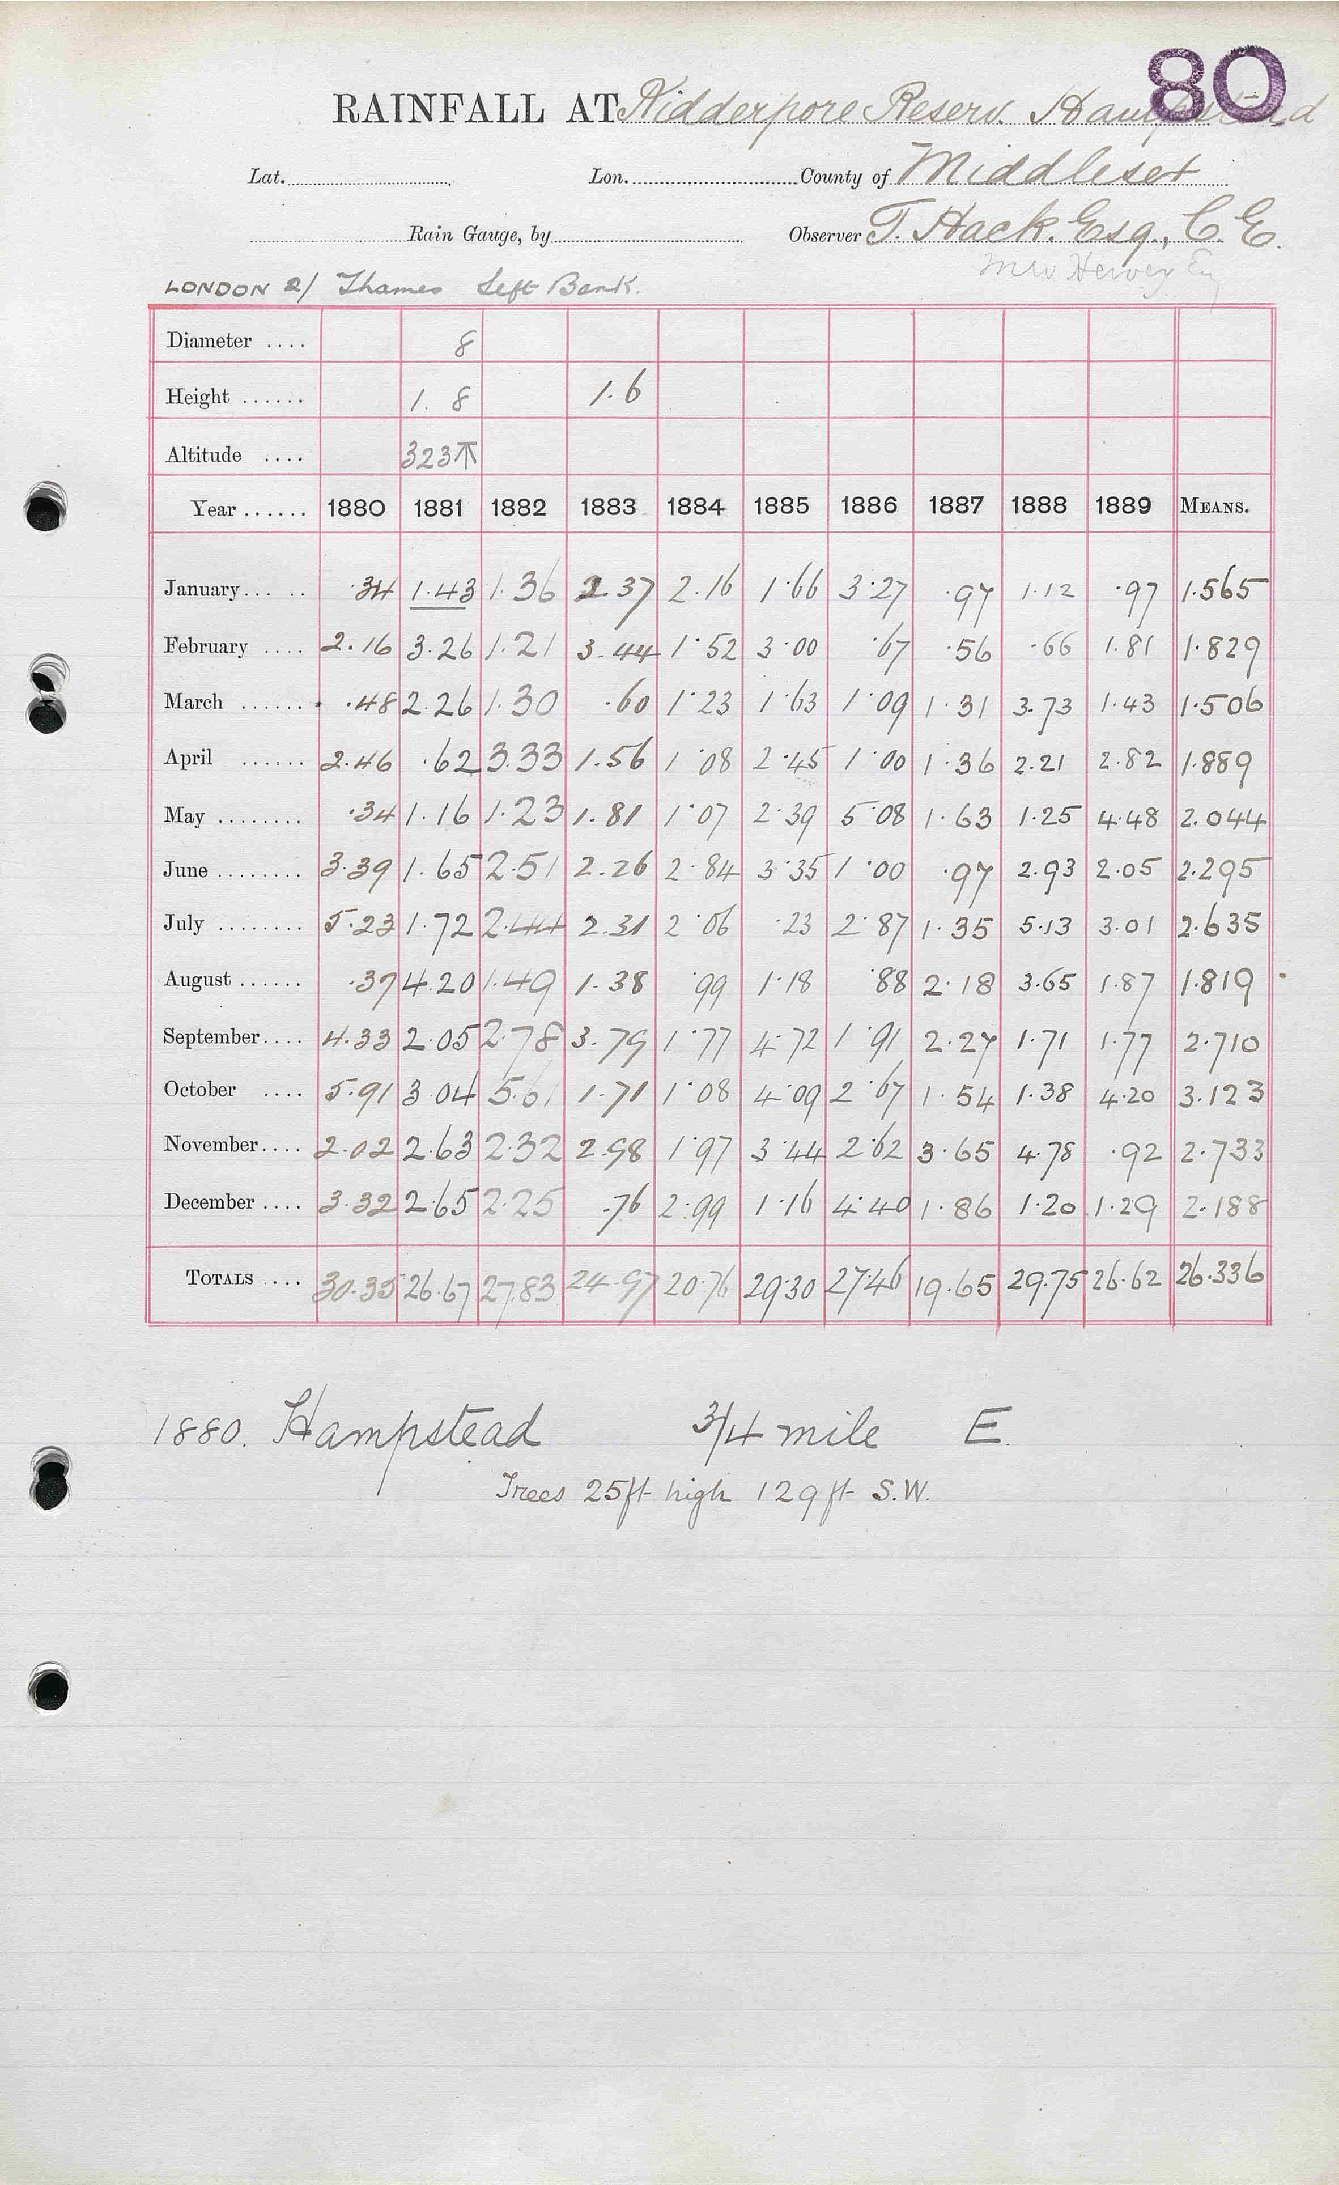 80
RAINFALL AT Kidderpore Reserv. Hampstead
Lat. Lon. County of Middlesex
Rain Gauge, by Observer T. Hack. Esq., C. E.
Hervey
LONDON 2/ Thames Left Bank.
Diameter .... 8
Height ...... 1. 8 1.6
Altitude .... 323
Year ...... 1880 1881 1882 1883 1884 1885 1886 1887 1888 1889 MEANS.
January... .. .34 1.43 1.36 2.37 2.16 1.66 3.27 .97 1.12 .97 1.565
February .... 2.16 3.26 1.21 3.44 1.52 3.00 .67 .56 .66 1.81 1.829
March ...... .48 2.26 1.30 .60 1.23 1.63 1.09 1.31 3.73 1.43 1.506
April ...... 2.46 .62 3.33 1.56 1.08 2.45 1.00 1.36 2.21 2.82 1.889
May ........ .34 1.16 1.23 1.81 1.07 2.39 5.08 1.63 1.25 4.48 2.044
June ........ 3.39 1.65 2.51 2.26 2.84 3.35 1.00 .97 2.93 2.05 2.295
July ........ 5.23 1.72 2.44 2.31 2.06 .23 2.87 1.35 5.13 3.01 2.635
August ...... .37 4.20 1.49 1.38 .99 1.18 .88 2.18 3.65 1.87 1.819
September.... 4.33 2.05 2.78 3.79 1.77 4.72 1.91 2.27 1.71 1.77 2.710
October .... 5.91 3.04 5.61 1.71 1.08 4.09 2.67 1.54 1.38 4.20 3.123
November.... 2.02 2.63 2.32 2.98 1.97 3.44 2.62 3.65 4.78 .92 2.733
December .... 3.32 2.65 2.25 .76 2.99 1.16 4.40 1.86 1.20 1.29 2.188
TOTALS .... 30.35 26.67 27.83 24.97 20.76 29.30 27.46 19.65 29.75 26.62 26.336
1880. Hampstead 3/4 mile E.
Trees 25ft high 129ft S.W.